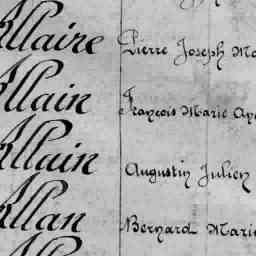 Allaire Pierre Joseph Ma
Allain François Marie Ay
Allain Augustin Julien
Allan Bernard Marie